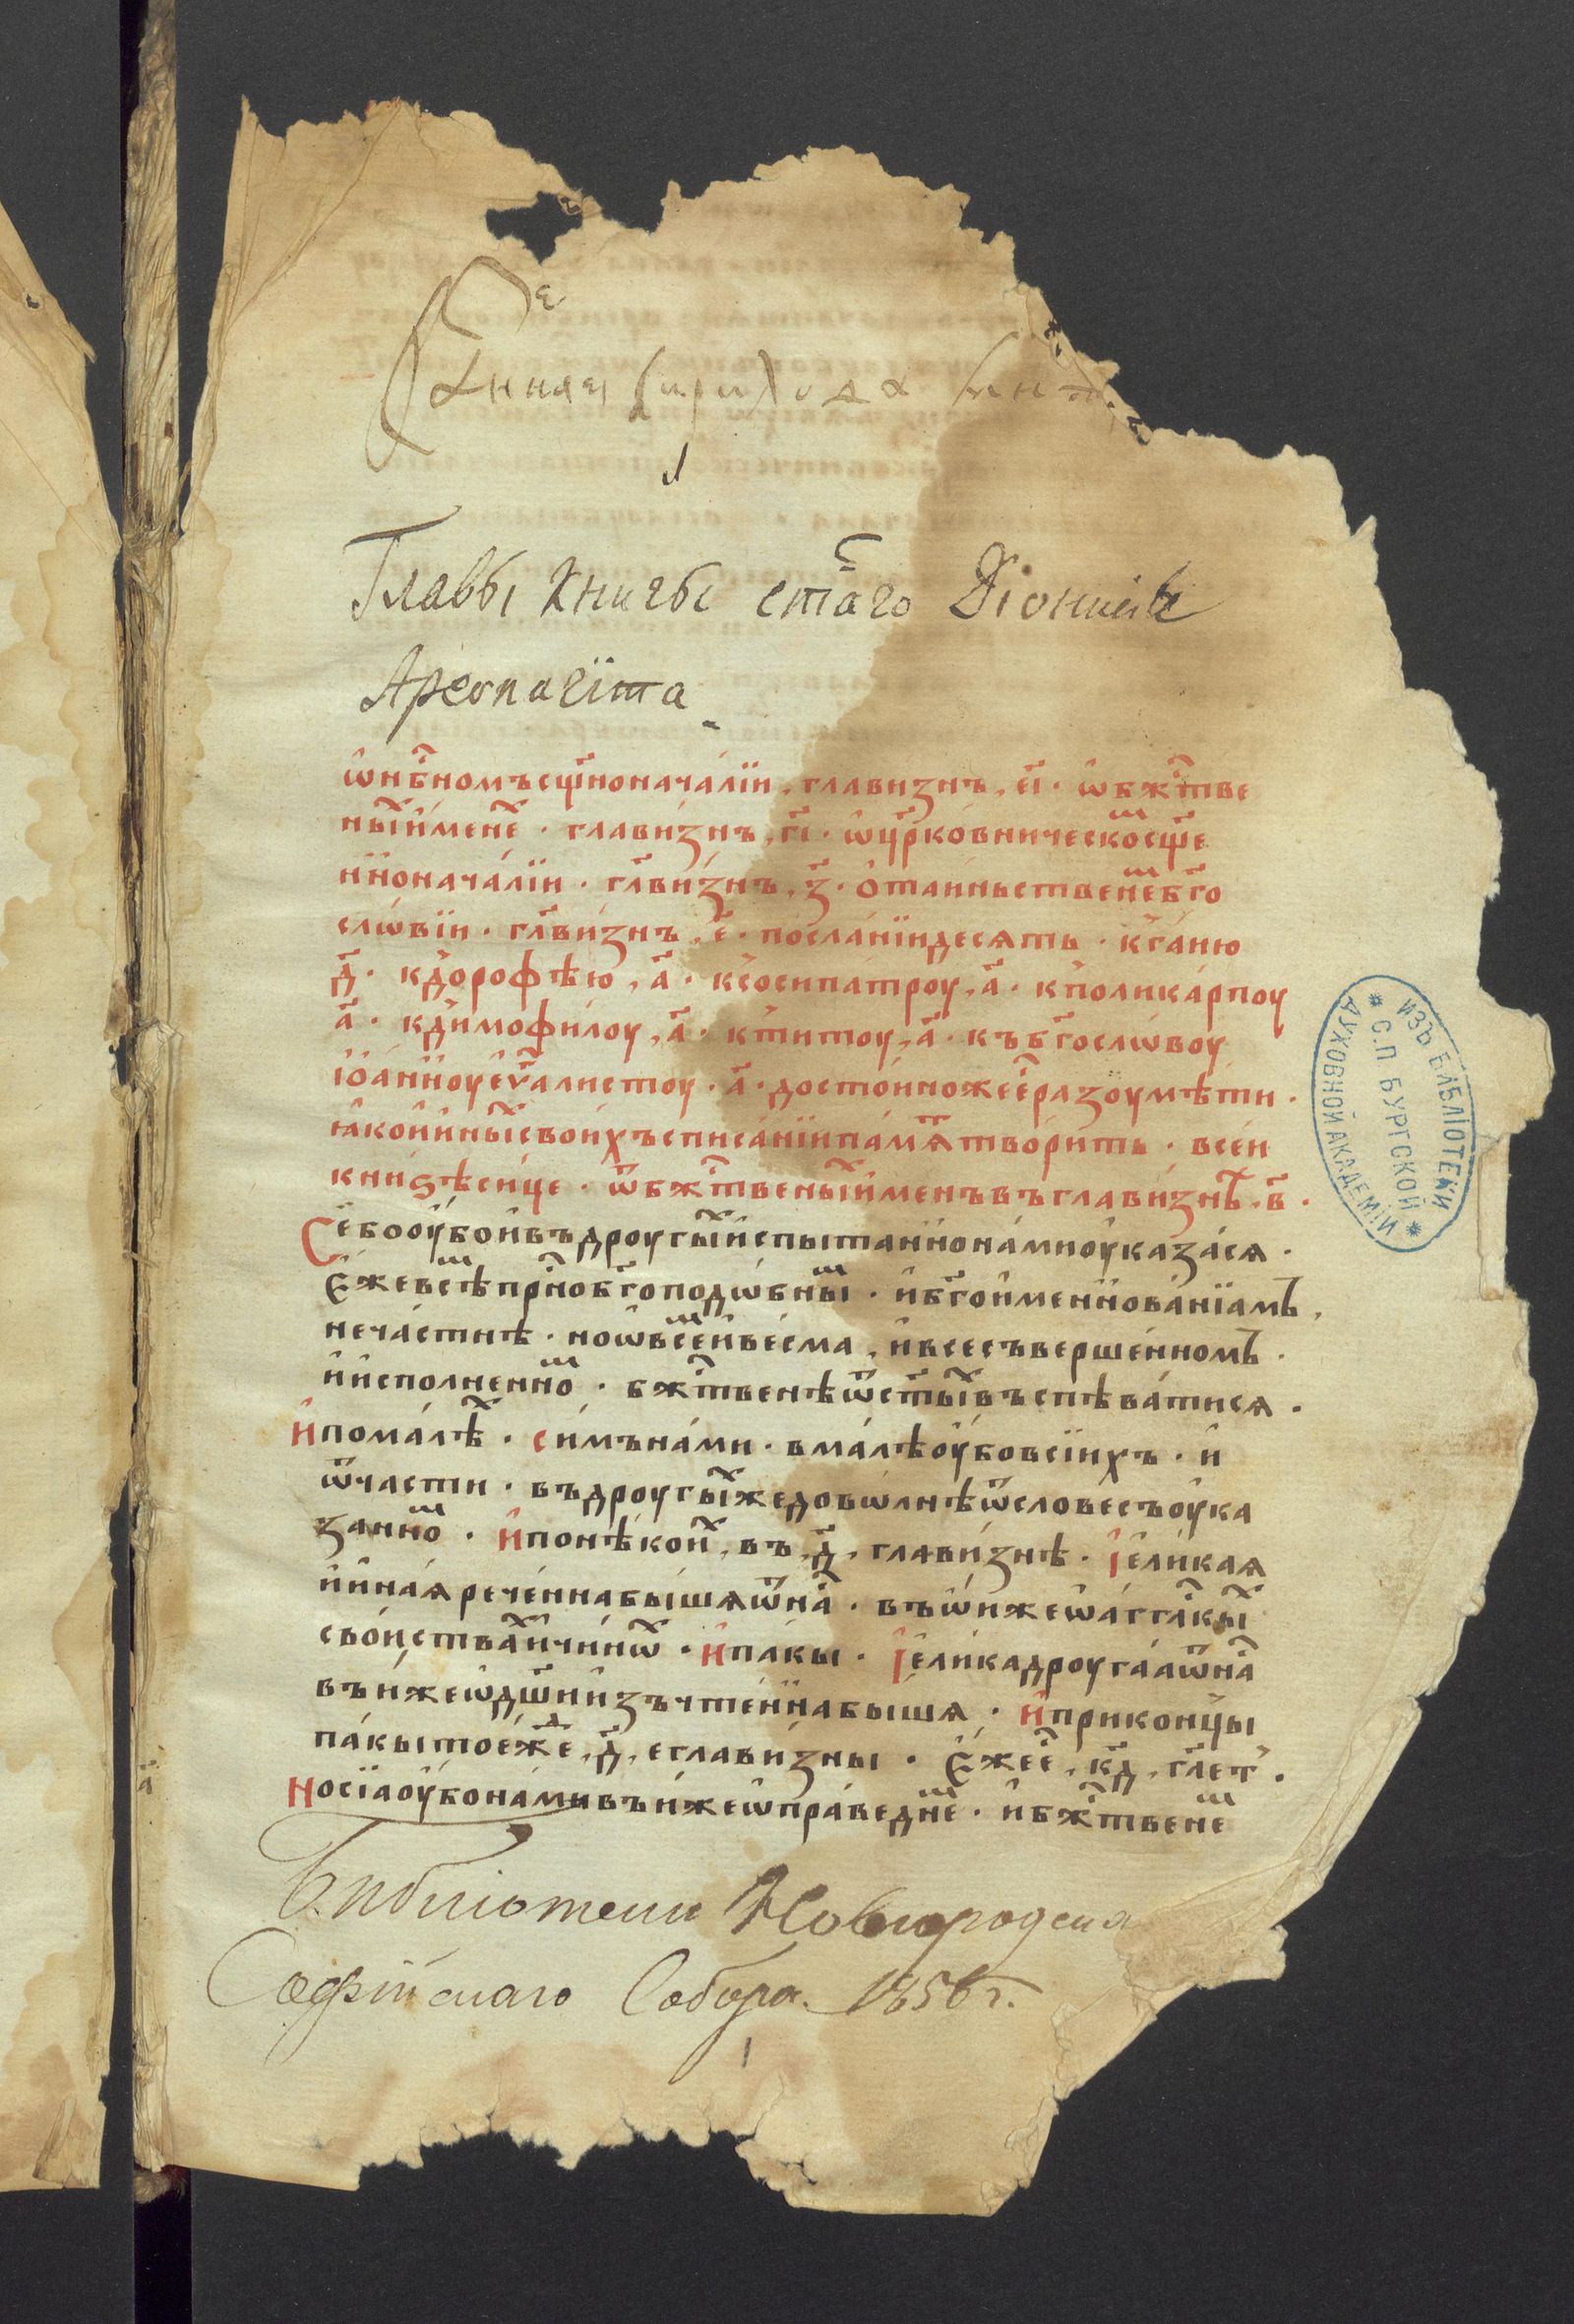 Главы книгы стаго Дїонисїа
Ареопагїта
ѡ҆нб҃номъсщ҃нноначалїи, главизнъ, е҃і · ѡ҆бжⷭ҇тве
ныⷯи҆менеⷯ · главизнъ, г҃і · ѡ҆цр҃ковническоⷨсщ҃е
нїноначалїи · гл҃визнъ, з҃ · ѻ҆таиньственеⷨб҃го
слѡвїи · гл҃визнъ, е҃ · посланїидесѧть · кга́ню
д҃ · кдорофѣю, а҃ · ксосипатроу, а҃ · кполикарпоу
а҃ · кдимофилоу, а҃ · ктитоу, а҃ · къбг҃ослѡвоу
і҆ѡанноуеѵⷢ҇алистоу · а҃ · достоинножееⷭ҇разоумѣти ·
ꙗкои҆ иныⷯсвоихъсписанїипамѧⷮтворить · всеи
кнiѕѣсице · ѿбжⷭ҇твеныⷯи҆менъвъглавизнѣ, в҃ ·
Сеꙋбоꙋбои҆въдроугыⷯиспытаннонамноуказасѧ ·
Ѐжевъсѣⷨприⷭ҇нобг҃оподѡбныⷨ · и҆бг҃оименнованїамъ,
нечастнѣ · ноѡвъсеⷨивесма, и҆всесъвершенномъ ·
и҆исполненноⷨ · бжⷭ҇твенѣѿст҃ыⷯвъспѣватисѧ ·
И҆помалѣⷯ · симънами · вмалѣоу҆бовсїихъ · и҆
ѿчасти · въдроугыⷯжедовѡлнѣѿсловесъоу҆ка
занноⷨ · И҆понѣкоиⷯ, въ, д҃, главизнѣ · І҆еликаѧ
и҆инаѧреченнабышаѿнаⷭ҇ · въѡ҆нжеѡ҆агглⷭ҇кыⷯ
своиствахичинѡⷯ · И҆пакы · І҆еликадроугаѧѿнаⷭ҇
въниⷤжеѡ҆дш҃ии҆зъчтеннабышѧ · И҆приконцы
пакытоеⷤже, д҃, еглавизны · Ѐжееⷭ҇, к҃д, гл҃ет ·
Носїаоу҆бонамивънижеѡ҆праведнеⷨ · и҆бжⷭ҇твенеⷨ
Библіотеки Новгородска
Софійскаго Собора. 1856 г.
ИЗЪ БИБЛІОТЕКИ
С.П БУРГСКОЙ
ДУХОВНОЙ АКАДЕМІИ